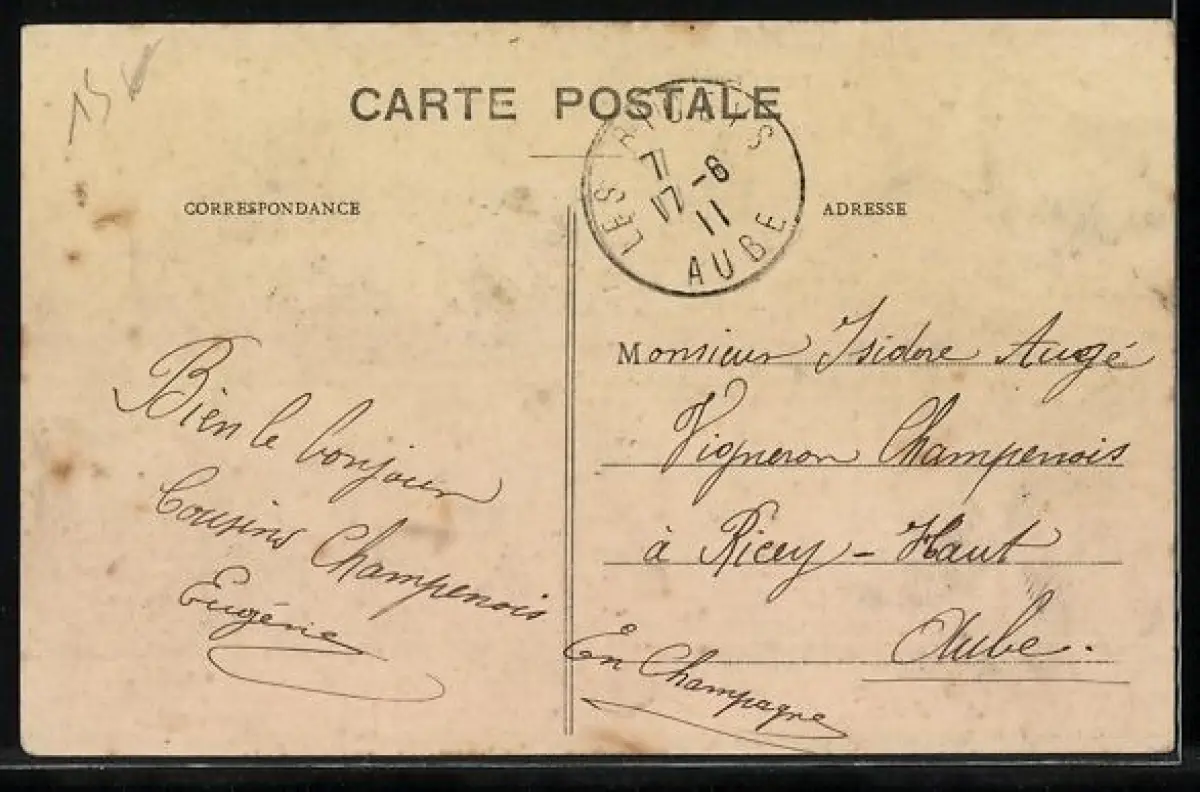 15
CARTE POSTALE
LES RICEYS
7
17-6
11
AUBE
CORRESPONDANCE
ADRESSE
Bien le bonjour
Cousins Champenois
Eugénie
Monsieur Isidore Augé
Vigneron Champenois
à Ricey-Haut
Aube.
En Champagne